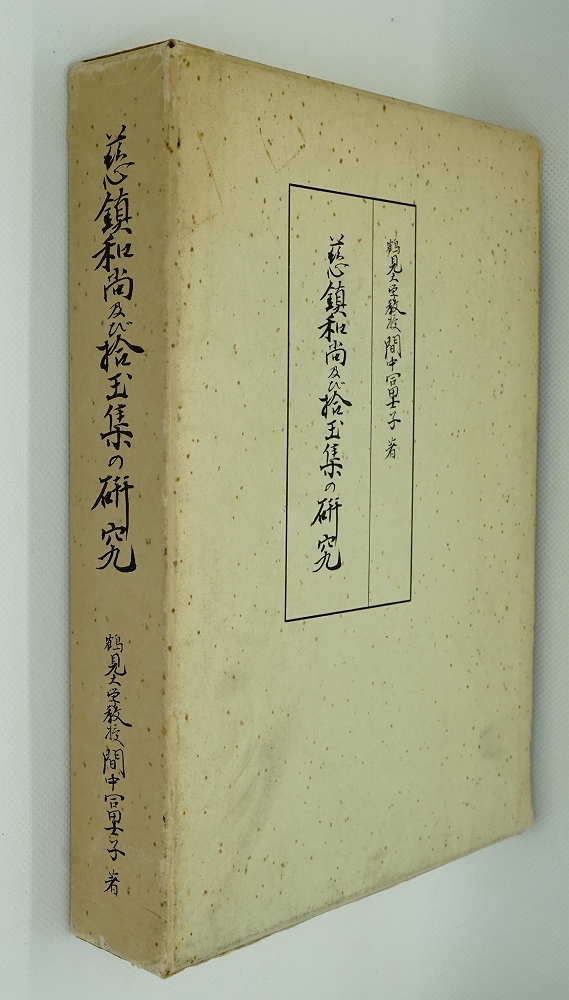 慈鎮和尚及び拾玉集の研究
鶴見大学教授 間中冨士子 著
鶴見大学教授 間中冨士子 著
慈鎮和尚及び拾玉集の研究